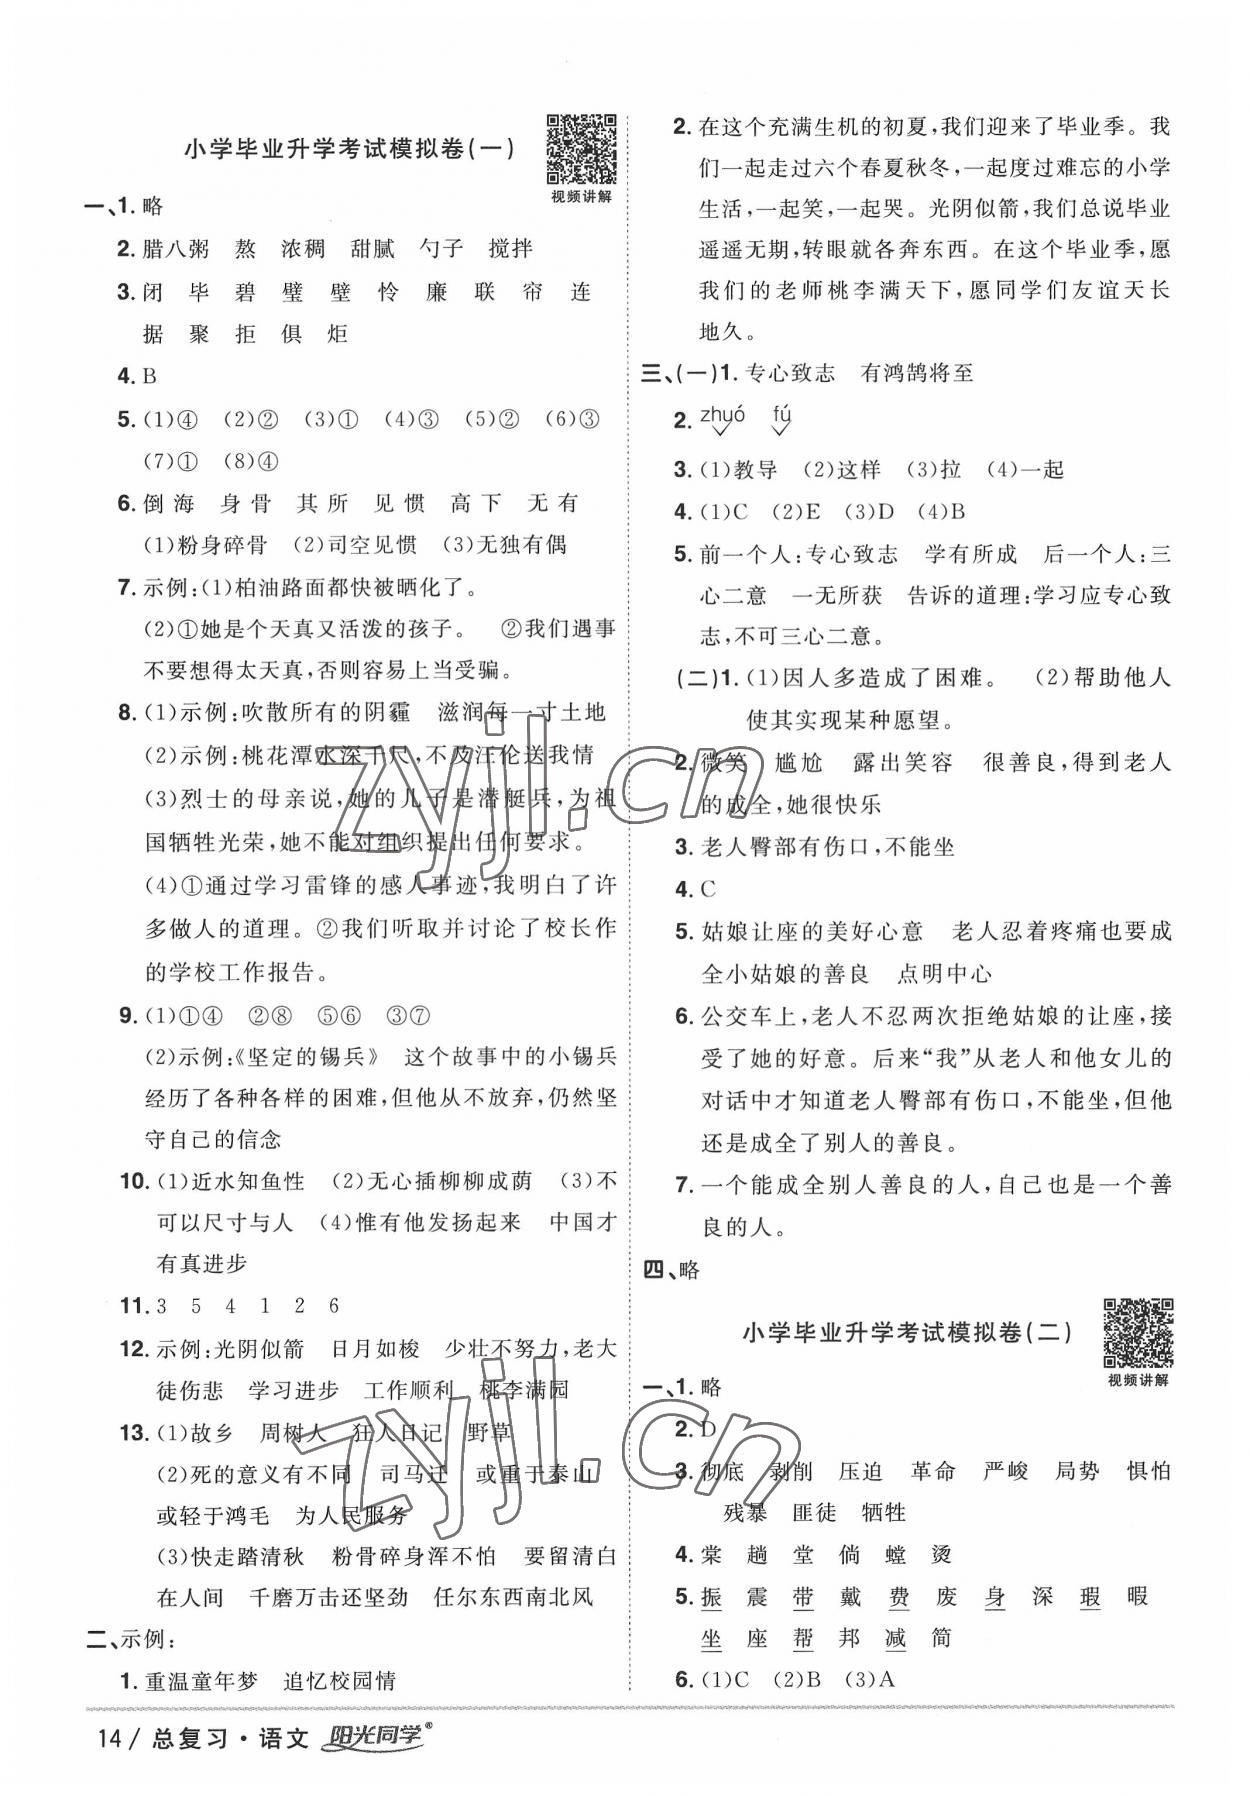 小学毕业升学考试模拟卷(一)
视频讲解
一、1. 略
2. 腊八粥 熬 浓稠 甜腻 勺子 搅拌
3. 闭 毕 碧 璧 壁 怜 廉 联 帘 连
据 聚 拒 俱 炬
4. B
5. (1)④ (2)② (3)① (4)③ (5)② (6)③
(7)① (8)④
6. 倒海 身骨 其所 见惯 高下 无有
(1)粉身碎骨 (2)司空见惯 (3)无独有偶
7. 示例:(1)柏油路面都快被晒化了。
(2)①她是个天真又活泼的孩子。 ②我们遇事
不要想得太天真,否则容易上当受骗。
8. (1)示例:吹散所有的阴霾 滋润每一寸土地
(2)示例:桃花潭水深千尺,不及汪伦送我情
(3)烈士的母亲说,她的儿子是潜艇兵,为祖
国牺牲光荣,她不能对组织提出任何要求。
(4)①通过学习雷锋的感人事迹,我明白了许
多做人的道理。②我们听取并讨论了校长作
的学校工作报告。
9. (1)①④ ②⑧ ⑤⑥ ③⑦
(2)示例:《坚定的锡兵》 这个故事中的小锡兵
经历了各种各样的困难,但他从不放弃,仍然坚
守自己的信念
10. (1)近水知鱼性 (2)无心插柳柳成荫 (3)不
可以尺寸与人 (4)惟有他发扬起来 中国才
有真进步
11. 3 5 4 1 2 6
12. 示例:光阴似箭 日月如梭 少壮不努力,老大
徒伤悲 学习进步 工作顺利 桃李满园
13. (1)故乡 周树人 狂人日记 野草
(2)死的意义有不同 司马迁 或重于泰山
或轻于鸿毛 为人民服务
(3)快走踏清秋 粉骨碎身浑不怕 要留清白
在人间 千磨万击还坚劲 任尔东西南北风
二、示例:
1. 重温童年梦 追忆校园情
2. 在这个充满生机的初夏,我们迎来了毕业季。我
们一起走过六个春夏秋冬,一起度过难忘的小学
生活,一起笑,一起哭。光阴似箭,我们总说毕业
遥遥无期,转眼就各奔东西。在这个毕业季,愿
我们的老师桃李满天下,愿同学们友谊天长
地久。
三、(一)1. 专心致志 有鸿鹄将至
2. zhuó fú
3. (1)教导 (2)这样 (3)拉 (4)一起
4. (1)C (2)E (3)D (4)B
5. 前一个人:专心致志 学有所成 后一个人:三
心二意 一无所获 告诉的道理:学习应专心致
志,不可三心二意。
(二)1. (1)因人多造成了困难。 (2)帮助他人
使其实现某种愿望。
2. 微笑 尴尬 露出笑容 很善良,得到老人
的成全,她很快乐
3. 老人臀部有伤口,不能坐
4. C
5. 姑娘让座的美好心意 老人忍着疼痛也要成
全小姑娘的善良 点明中心
6. 公交车上,老人不忍两次拒绝姑娘的让座,接
受了她的好意。后来“我”从老人和他女儿的
对话中才知道老人臀部有伤口,不能坐,但他
还是成全了别人的善良。
7. 一个能成全别人善良的人,自己也是一个善
良的人。
四、略
小学毕业升学考试模拟卷(二)
视频讲解
一、1. 略
2. D
3. 彻底 剥削 压迫 革命 严峻 局势 惧怕
残暴 匪徒 牺牲
4. 棠 趟 堂 倘 螳 烫
5. 振 震 带 戴 费 废 身 深 瑕 暇
坐 座 帮 邦 减 简
6. (1)C (2)B (3)A
14 / 总复习·语文 阳光同学®
zyjl.cn
zyjl.cn